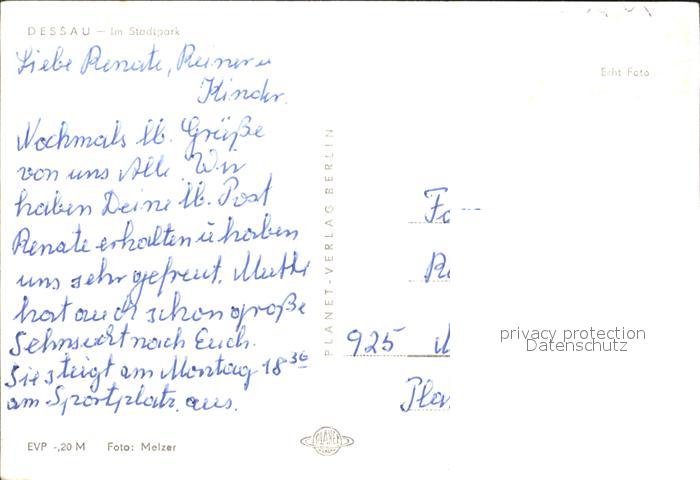 DESSAU – Im Stadtpark
Liebe Renate, Reiner u
Kinder.
Nochmals lb. Grüße
von uns Alle. Wir
haben Deine lb. Post
Renate erhalten u haben
uns sehr gefreut. Mutti
hat auch schon große
Sehnsucht nach Euch.
Sie steigt am Montag 18 30
am Sportplatz aus.
EVP -,20 M Foto: Melzer
PLANET-VERLAG BERLIN
PLANET
Echt Foto
Fa
R
925
Pla
privacy protection
Datenschutz